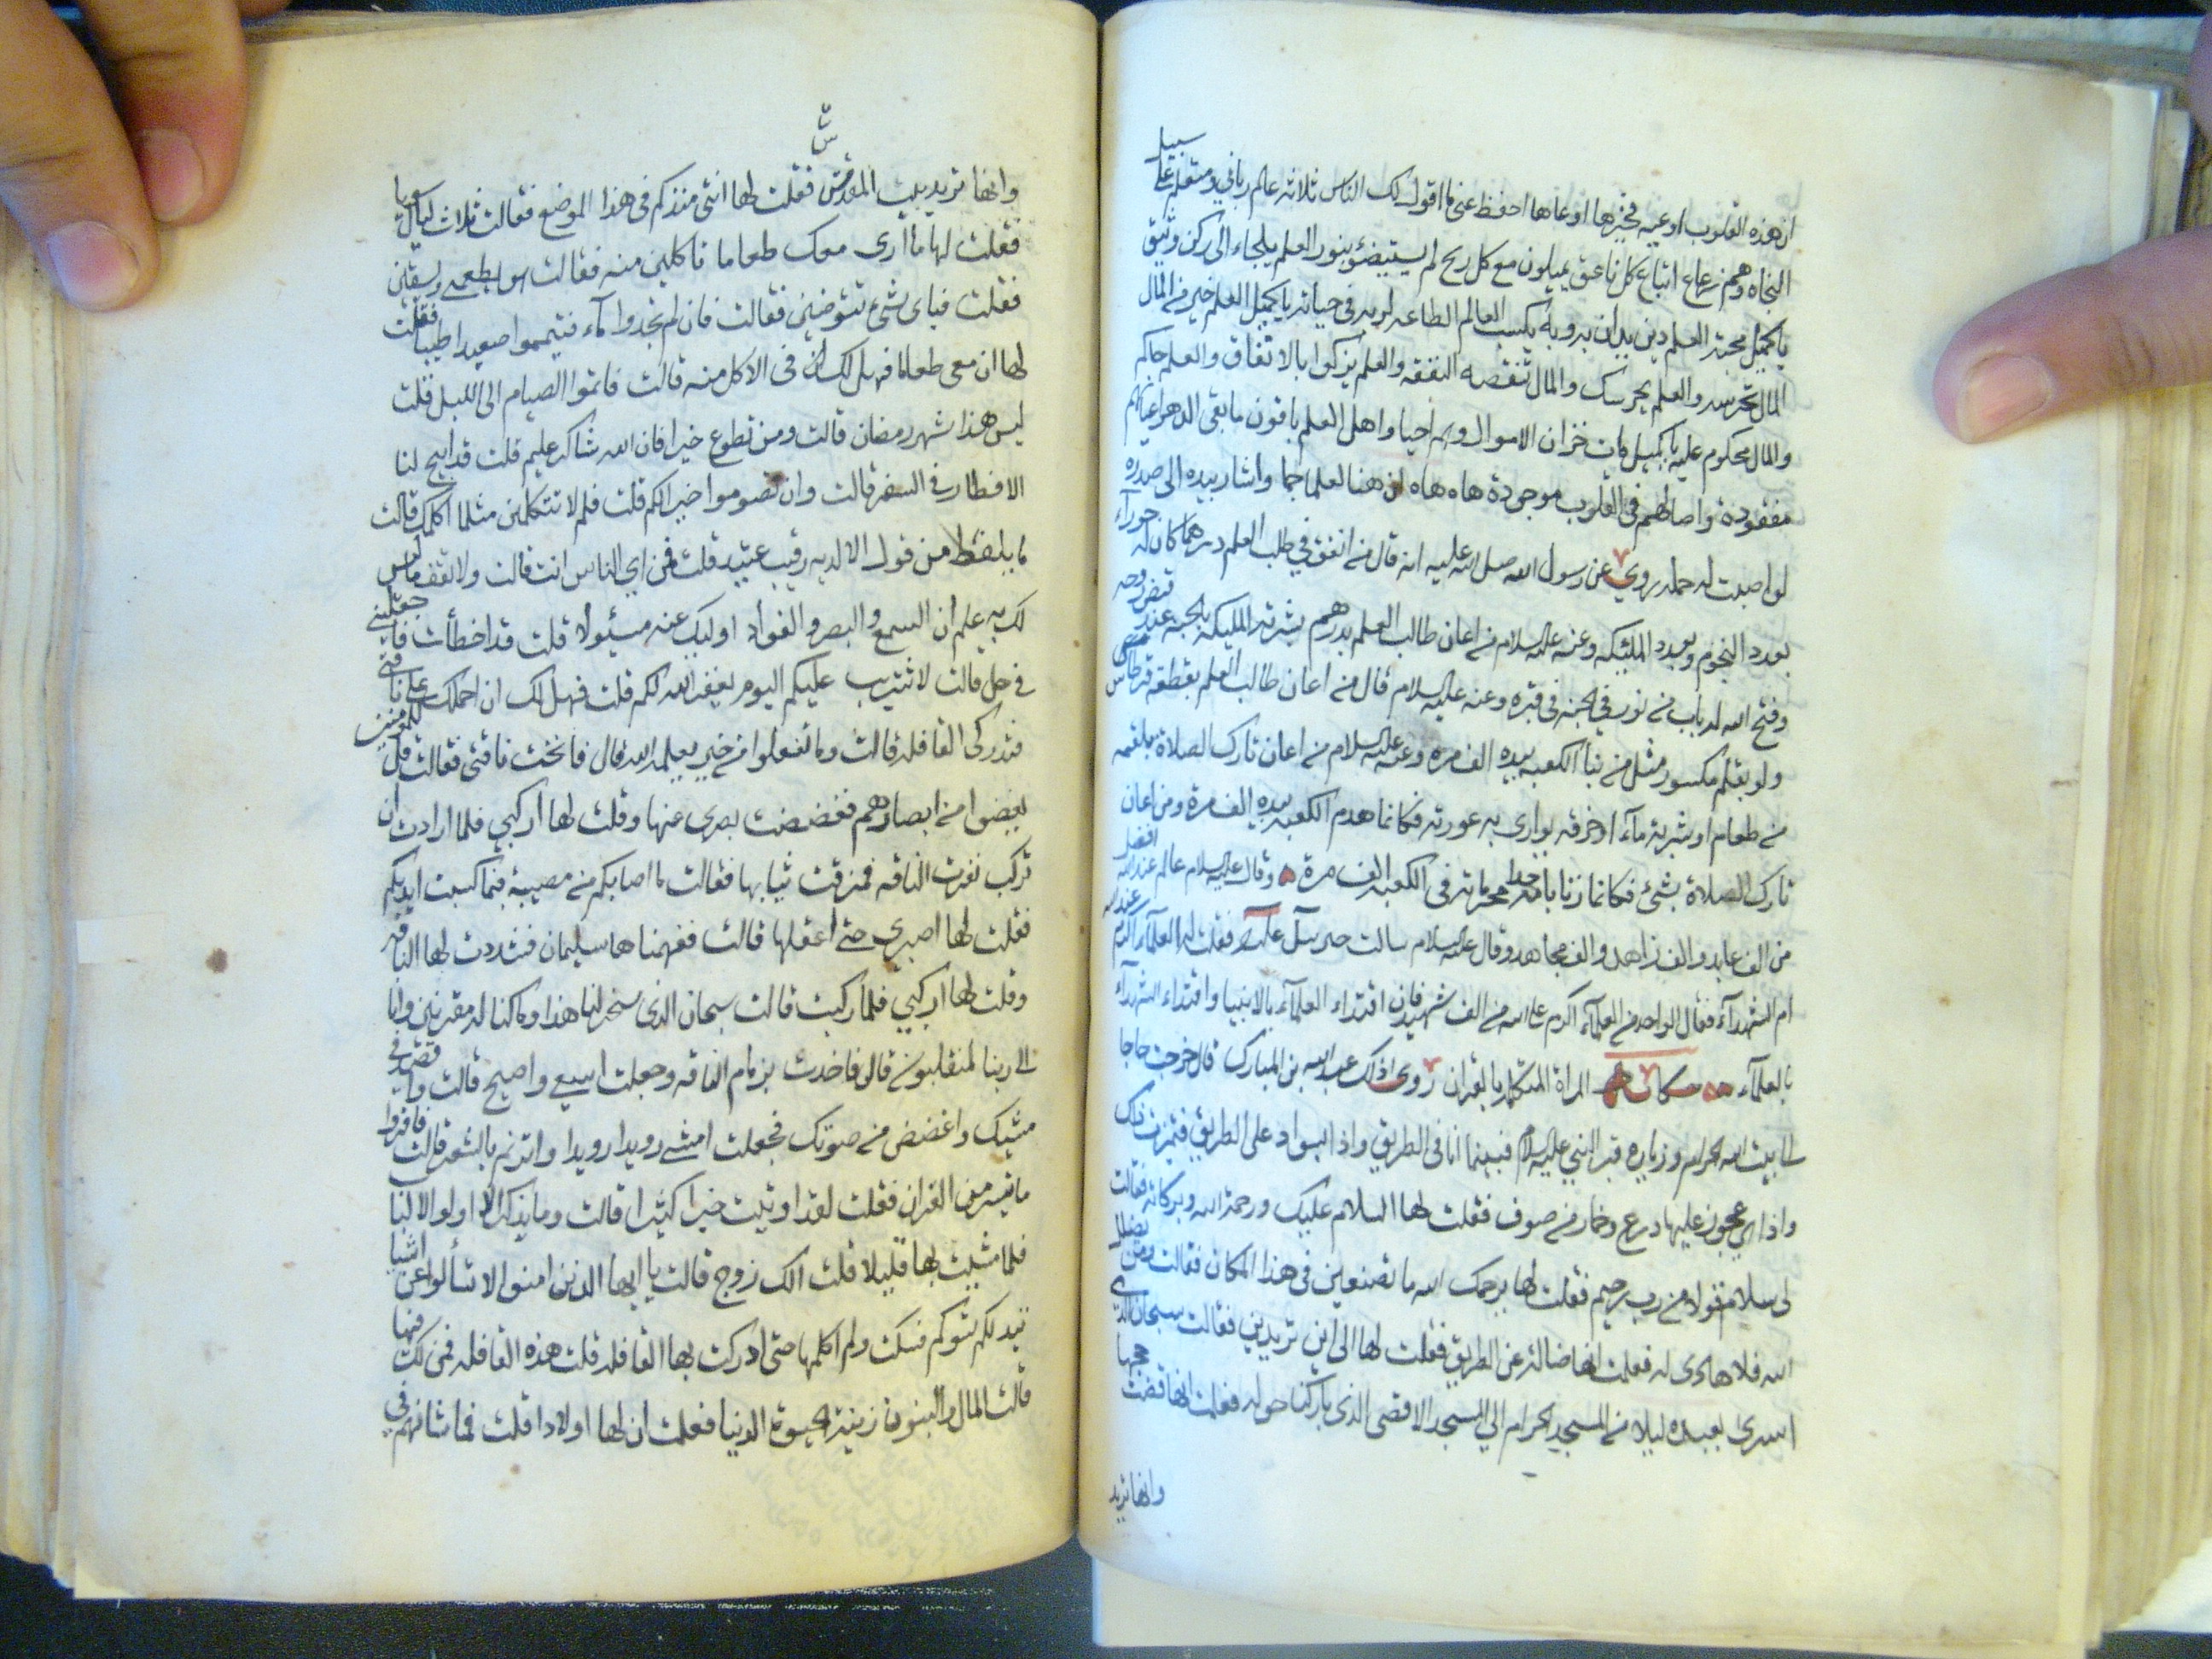 ان هذه القلوب اوعيه فخيرها اوعاها احفظ عني ما اقول لك الناس ثلاثه عالم رباني ومتعلم على سبيل
النجاه وهمج رعاع اتباع كل ناعق يميلون مع كل ريح لم يستيضؤ بنور العلم يلجاء الى ركن وثيق
يا كميل محبة العلم دين يدان به وبه يكسب العالم الطاعه لربه في حياته يا كميل العلم خير من المال
المال تحرسه والعلم يحرسك والمال تنقصه النفقه والعلم يزكوا بالاتفاق والعلم حاكم
والمال محكوم عليه يا كميل مات خزان الاموال وهم احيا واهل العلم باقون ما بقى الدهر اعيانهم
مفقودة وامثالهم في القلوب موجودة هاه هاه ان هنا لعلما جما واشار بيده الى صدره
لو اصبت له حمله روي عن رسول الله صلى الله عليه انه قال من انفق في طلب العلم درهما كان له جزآء
بعدد النجوم وبعدد الملئكه وعنه عليه السلام من اعان طالب العلم بدرهم بشرته المليكه بالجنه عند قبض روحه
وفتح الله له باب من نور في الجنه في قبره وعنه عليه السلام قال من اعان طالب العلم بقطعة قرطاس
ولو بقلم مكسور مثل من بنا الكعبه بيده الف مره وعنه عليه السلام من اعان تارك الصلاة بلقمه
من طعام او شربة مآء او خرقه يوارى به عورته فكانما هدم الكعبه بيده الف مرة ومن اعان
تارك الصلاة بشئ فكانما زنا بامه محرماته في الكعبه الف مرة وقال عليه السلام عالم عند الله افضل
من الف عابد والف زاهد والف مجاهد وقال عليه السلام سالت جبريل فقلت له العلمآء اكرم عند الله
ام الشهدآء فقال الواحد من العلمآء اكرم على الله من الف شهيد فان اقتداء العلمآء بالانبيا واقتداء الشهدآء
بالعلمآء حكاية المراة المتكلمه بالقران روى عبد الله بن المبارك قال خرجت حاجا
الى بيت الله الحرام وزياره قبر النبي عليه السلام فبينما انا في الطريق واذا بسواد على الطريق فتميزت ذلك
واذا هي عجوز عليها درع وخمار من صوف فقلت لها السلام عليك ورحمة الله وبركاته فقالت
لى سلام قولا من رب رحيم فقلت لها يرحمك الله ما تصنعين في هذا المكان فقالت ومن يضلل
الله فلا هادى له فعلمت انها ضالة عن الطريق فقلت لها الى اين تريدين فقالت سبحان الذى
اسرى بعبده ليلا من المسجد الحرام الي المسجد الاقصى الذى باركنا حوله فعلمت انها قضت حجها
وانها تريد
وانها تريد بيت المقدس فقلت لها انتى منذ كم في هذا الموضع فقالت ثلاث ليال سويا
فقلت لها ما ارى معك طعاما تاكلين منه فقالت هو يطعمنى ويسقين
فقلت فباى شئ تتوضئين فقالت فان لم تجدوا مآء فتيمموا صعيدا طيبا فقلت
لها ان معى طعاما فهل لك في الاكل منه قالت فاتموا الصيام الى الليل قلت
ليس هذا شهر رمضان قالت ومن تطوع خيرا فان الله شاكر عليم قلت قد ابيح لنا
الافطار في السفر قالت وان تصوموا خير لكم قلت فلم لا تتكلمين مثلما اكلمك قالت
ما يلفظ من قول الا لديه رقيب عتيد قلت فمن اي الناس انت قالت ولا تقف ما ليس
لك به علم ان السمع والبصر والفواد اوليك عنه مسئولا قلت قد اخطأت فاجعليني
في حل قالت لا تثريب عليكم اليوم يغفر الله لكم قلت فهل لك ان احملك على ناقتى
فتدركى القافله قالت وما تفعلوا من خير يعلمه الله قال فانخت ناقتى فقالت قل للمؤمنين
يغضوا من ابصارهم فغضضت بصرى عنها وقلت لها اركبي فلما ارادت ان
تركب نفرت الناقه فمزقت ثيابها فقالت ما اصابكم من مصيبة فبما كسبت ايديكم
فقلت لها اصبري حتى اعقلها قالت ففهمناها سليمان فشددت لها الناقه
وقلت لها اركبي فلما ركبت قالت سبحان الذى سخر لنا هذا وما كنا له مقرنين وانا
الى ربنا لمنقلبون قال فاخذت بزمام الناقه وجعلت اسعي واصيح قالت واقصد في
مشيك واغضض من صوتك فجعلت امشي رويدا رويدا واترنم بالشعر قالت فاقروا
ما تيسر من القران فقلت لقد اوتيت خيرا كثيرا قالت وما يذكر الا اولوا الالبا
فلما مشيت بها قليلا قلت الك زوج قالت يا ايها الذين امنوا لا تسألوا عن اشيا
تبد لكم تسوكم فسكت ولم اكلمها حتى ادركت بها القافله قلت هذه القافله فمن لك فيها
قالت المال والبنون زينة الحيوة الدنيا فعلمت ان لها اولادا قلت فما شانهم في